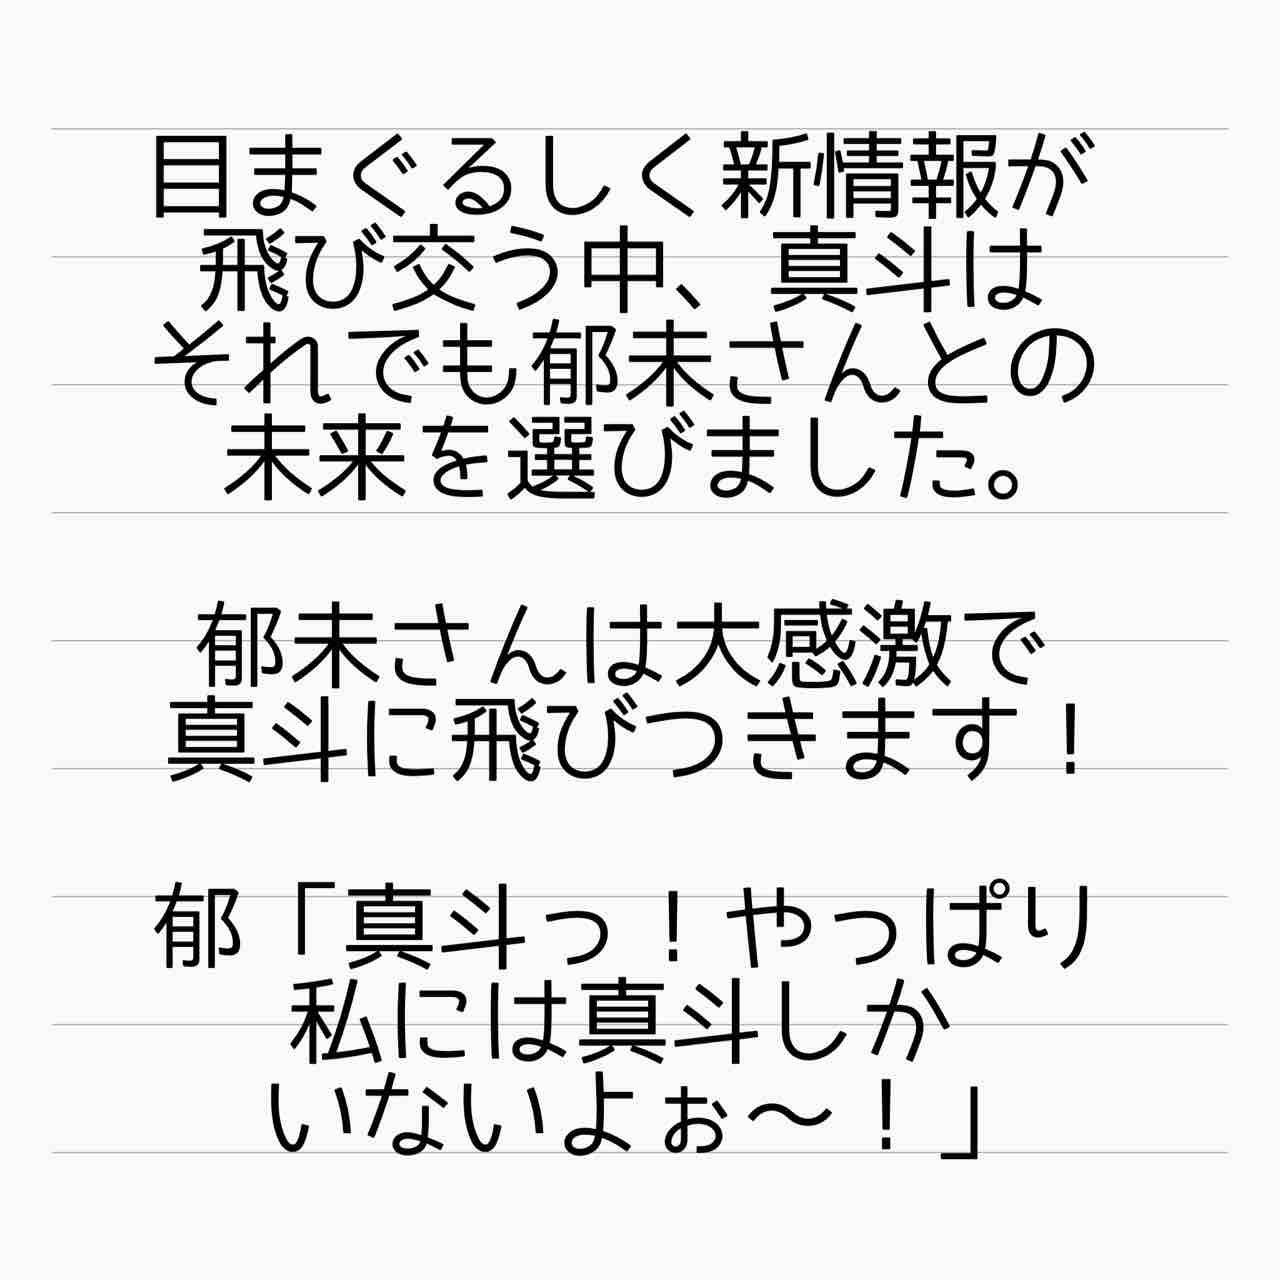 目まぐるしく新情報が
飛び交う中、真斗は
それでも郁未さんとの
未来を選びました。
郁未さんは大感激で
真斗に飛びつきます！
郁「真斗っ！やっぱり
私には真斗しか
いないよぉ〜！」